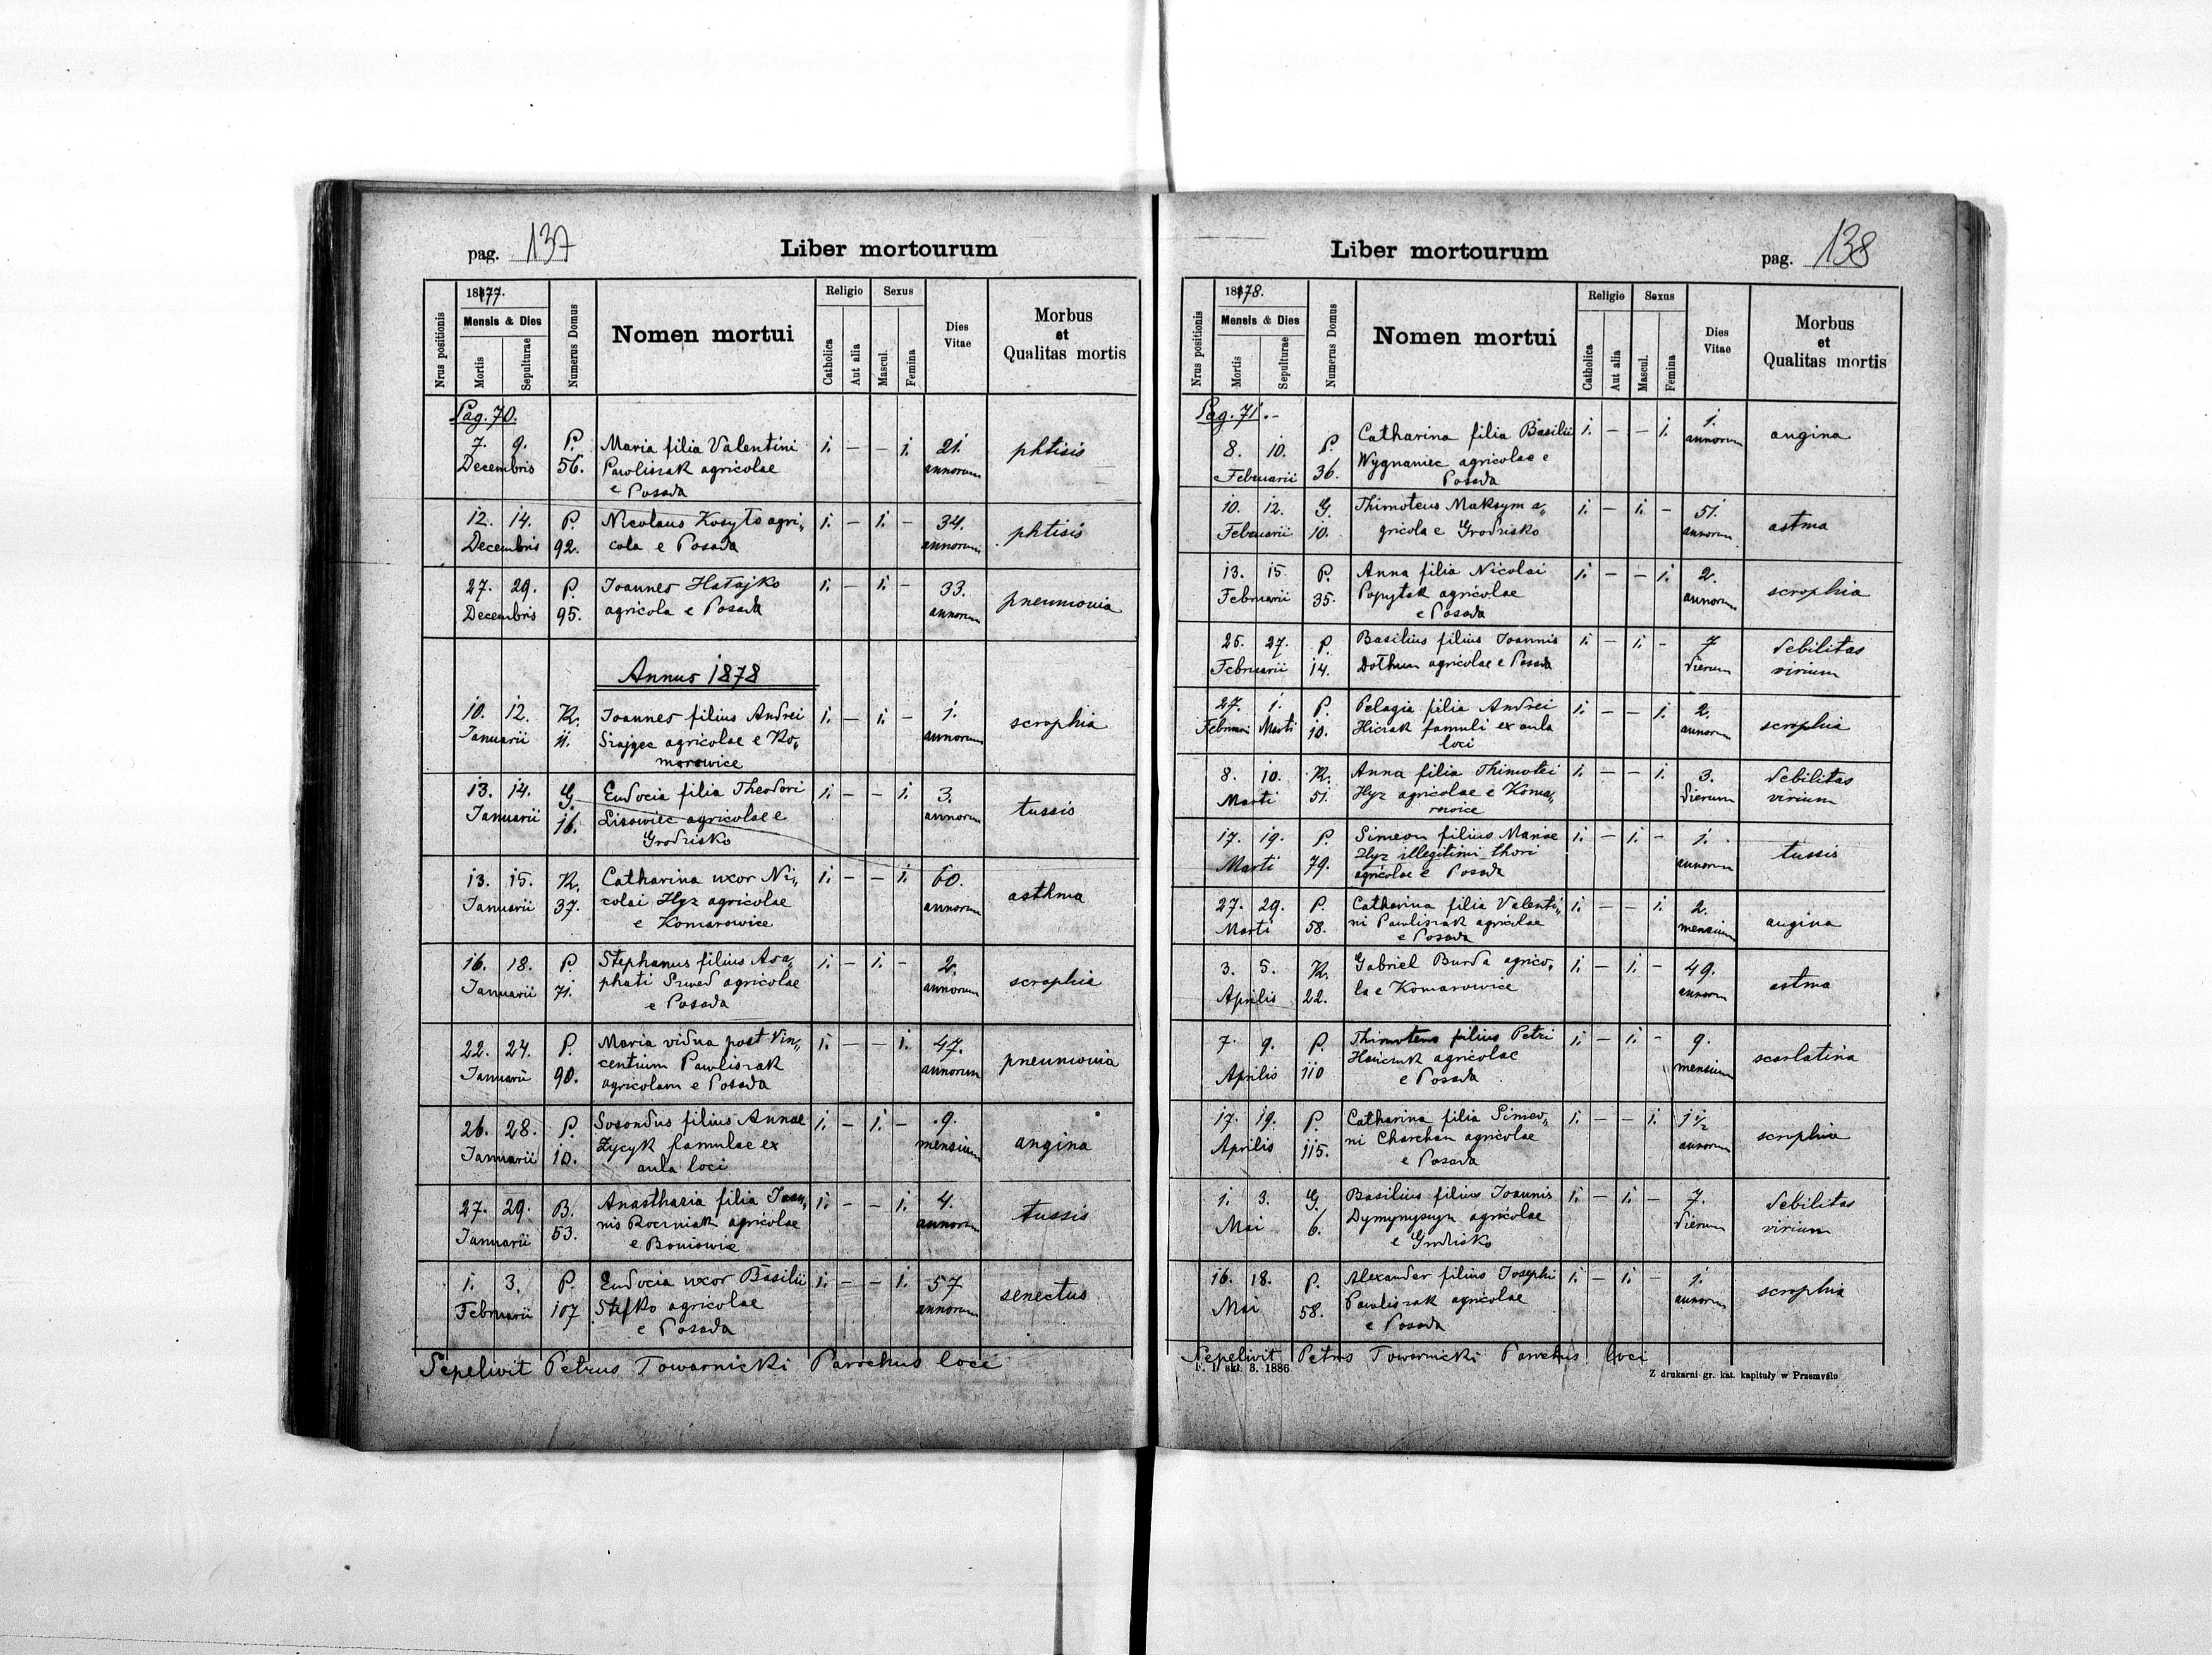 pag. 137
Liber mortourum
1877.
Mensis & Dies
Religio Sexus
Nrus positionis
Mortis
Sepulturae
Numerus Domus
Nomen mortui
Catholica
Aut alia
Mascul.
Femina
Dies
Vitae
Morbus
et
Qualitas mortis
Pag. 70.
7. 9. P. Maria filia Valentini 1. — — 1. 21. phtisis
Decembris 56. Pawlisrak agricolae annorum
e Posada
12. 14. P. Nicolaus Kosyto agri„ 1. — 1. — 34. phtisis
Decembris 92. cola e Posada annorum
27. 29. P. Ioannes Hatajko 1. — 1. — 33. pneumonia
Decembris 95. agricola e Posada annorum
Annus 1878
10. 12. K. Ioannes filius Andrei 1. — 1. — 1. scrophia
Ianuarii 11. Srajgec agricolae e Ko„ annorum
marowice
13. 14. G. Eudocia filia Theodori 1. — — 1. 3. tussis
Ianuarii 16. Lisowiec agricolae e annorum
Grodrisko
13. 15. K. Catharina uxor Ni„ 1. — — 1. 60. asthma
Ianuarii 37. colai Hyz agricolae annorum
e Komarowice
16. 18. P. Stephanus filius Asa„ 1. — 1. — 2. scrophia
Ianuarii 71. phati Szwed agricolae annorum
e Posada
22. 24. P. Maria vidua post Vin„ 1. — — 1. 47. pneumonia
Ianuarii 90. centium Pawlisrak annorum
agricolam e Posada
26. 28. P. Sosondus filius Annae 1. — 1. — 9. angina
Ianuarii 10. Zycyk famulae ex mensium
aula loci
27. 29. B. Anasthasia filia Ioan„ 1. — — 1. 4. tussis
Ianuarii 53. nis Rocrniak agricolae annorum
e Boniowic
1. 3. P. Eudocia uxor Basilii 1. — — 1. 57 senectus
Februarii 107 Stefko agricolae annorum
e Posada
Sepelivit Petrus Towarnicki Parochus loci
Liber mortourum
pag. 138
1878.
Mensis & Dies
Religio Sexus
Nrus positionis
Mortis
Sepulturae
Numerus Domus
Nomen mortui
Catholica
Aut alia
Mascul.
Femina
Dies
Vitae
Morbus
et
Qualitas mortis
Pag. 71.-
8. 10. P. Catharina filia Basilii 1. — — 1. 1. angina
Februarii 36. Wygnaniec agricolae e annorum
Posada
10. 12. G. Thimoteus Maksym a„ 1. — 1. — 51. astma
Februarii 10. gricola e Grodrisko annorum
13. 15. P. Anna filia Nicolai 1. — — 1. 2. scrophia
Februarii 35. Popytak agricolae annorum
e Posada
25. 27. P. Basilius filius Ioannis 1. — 1. — 7 debilitas
Februarii 14. Dothun agricolae e Posada dierum virium
27. 1. P. Pelagia filia Andrei 1. — — 1. 2. scrophia
Februarii Marti 10. Hicrak famuli ex aula annorum
loci
8. 10. K. Anna filia Thimotei 1. — — 1. 3. debilitas
Marti 51. Hyz agricolae e Koma„ dierum virium
rowice
17. 19. P. Simeon filius Mariae 1. — 1. — 1. tussis
Marti 79. Hyz illegitimi thori annorum
agricolae e Posada
27. 29. P. Catharina filia Valenti„ 1. — — 1. 2. angina
Marti 58. ni Pawlisrak agricolae mensium
e Posada
3. 5. K. Gabriel Burda agrico„ 1. — 1. — 49. astma
Aprilis 22. la e Komarowice annorum
7. 9. P. Thimoteus filius Petri 1. — 1. — 9. scarlatina
Aprilis 110 Hanczuk agricolae mensium
e Posada
17. 19. P. Catharina filia Simeo„ 1. — — 1. 1 1/2 scrophia
Aprilis 115. ni Charchan agricolae annorum
e Posada
1. 3. G. Basilius filius Ioannis 1. — 1. — 7. debilitas
Mai 6. Dymynyszyn agricolae dierum virium
e Grodrisko
16. 18. P. Alexander filius Iosephi 1. — 1. — 1. scrophia
Mai 58. Pawlisrak agricolae annorum
e Posada
Sepelivit Petrus Towarnicki Parochus loci
F. 1/ skt. 3. 1886
Z drukarni gr. kat. kapituły w Przemyślu